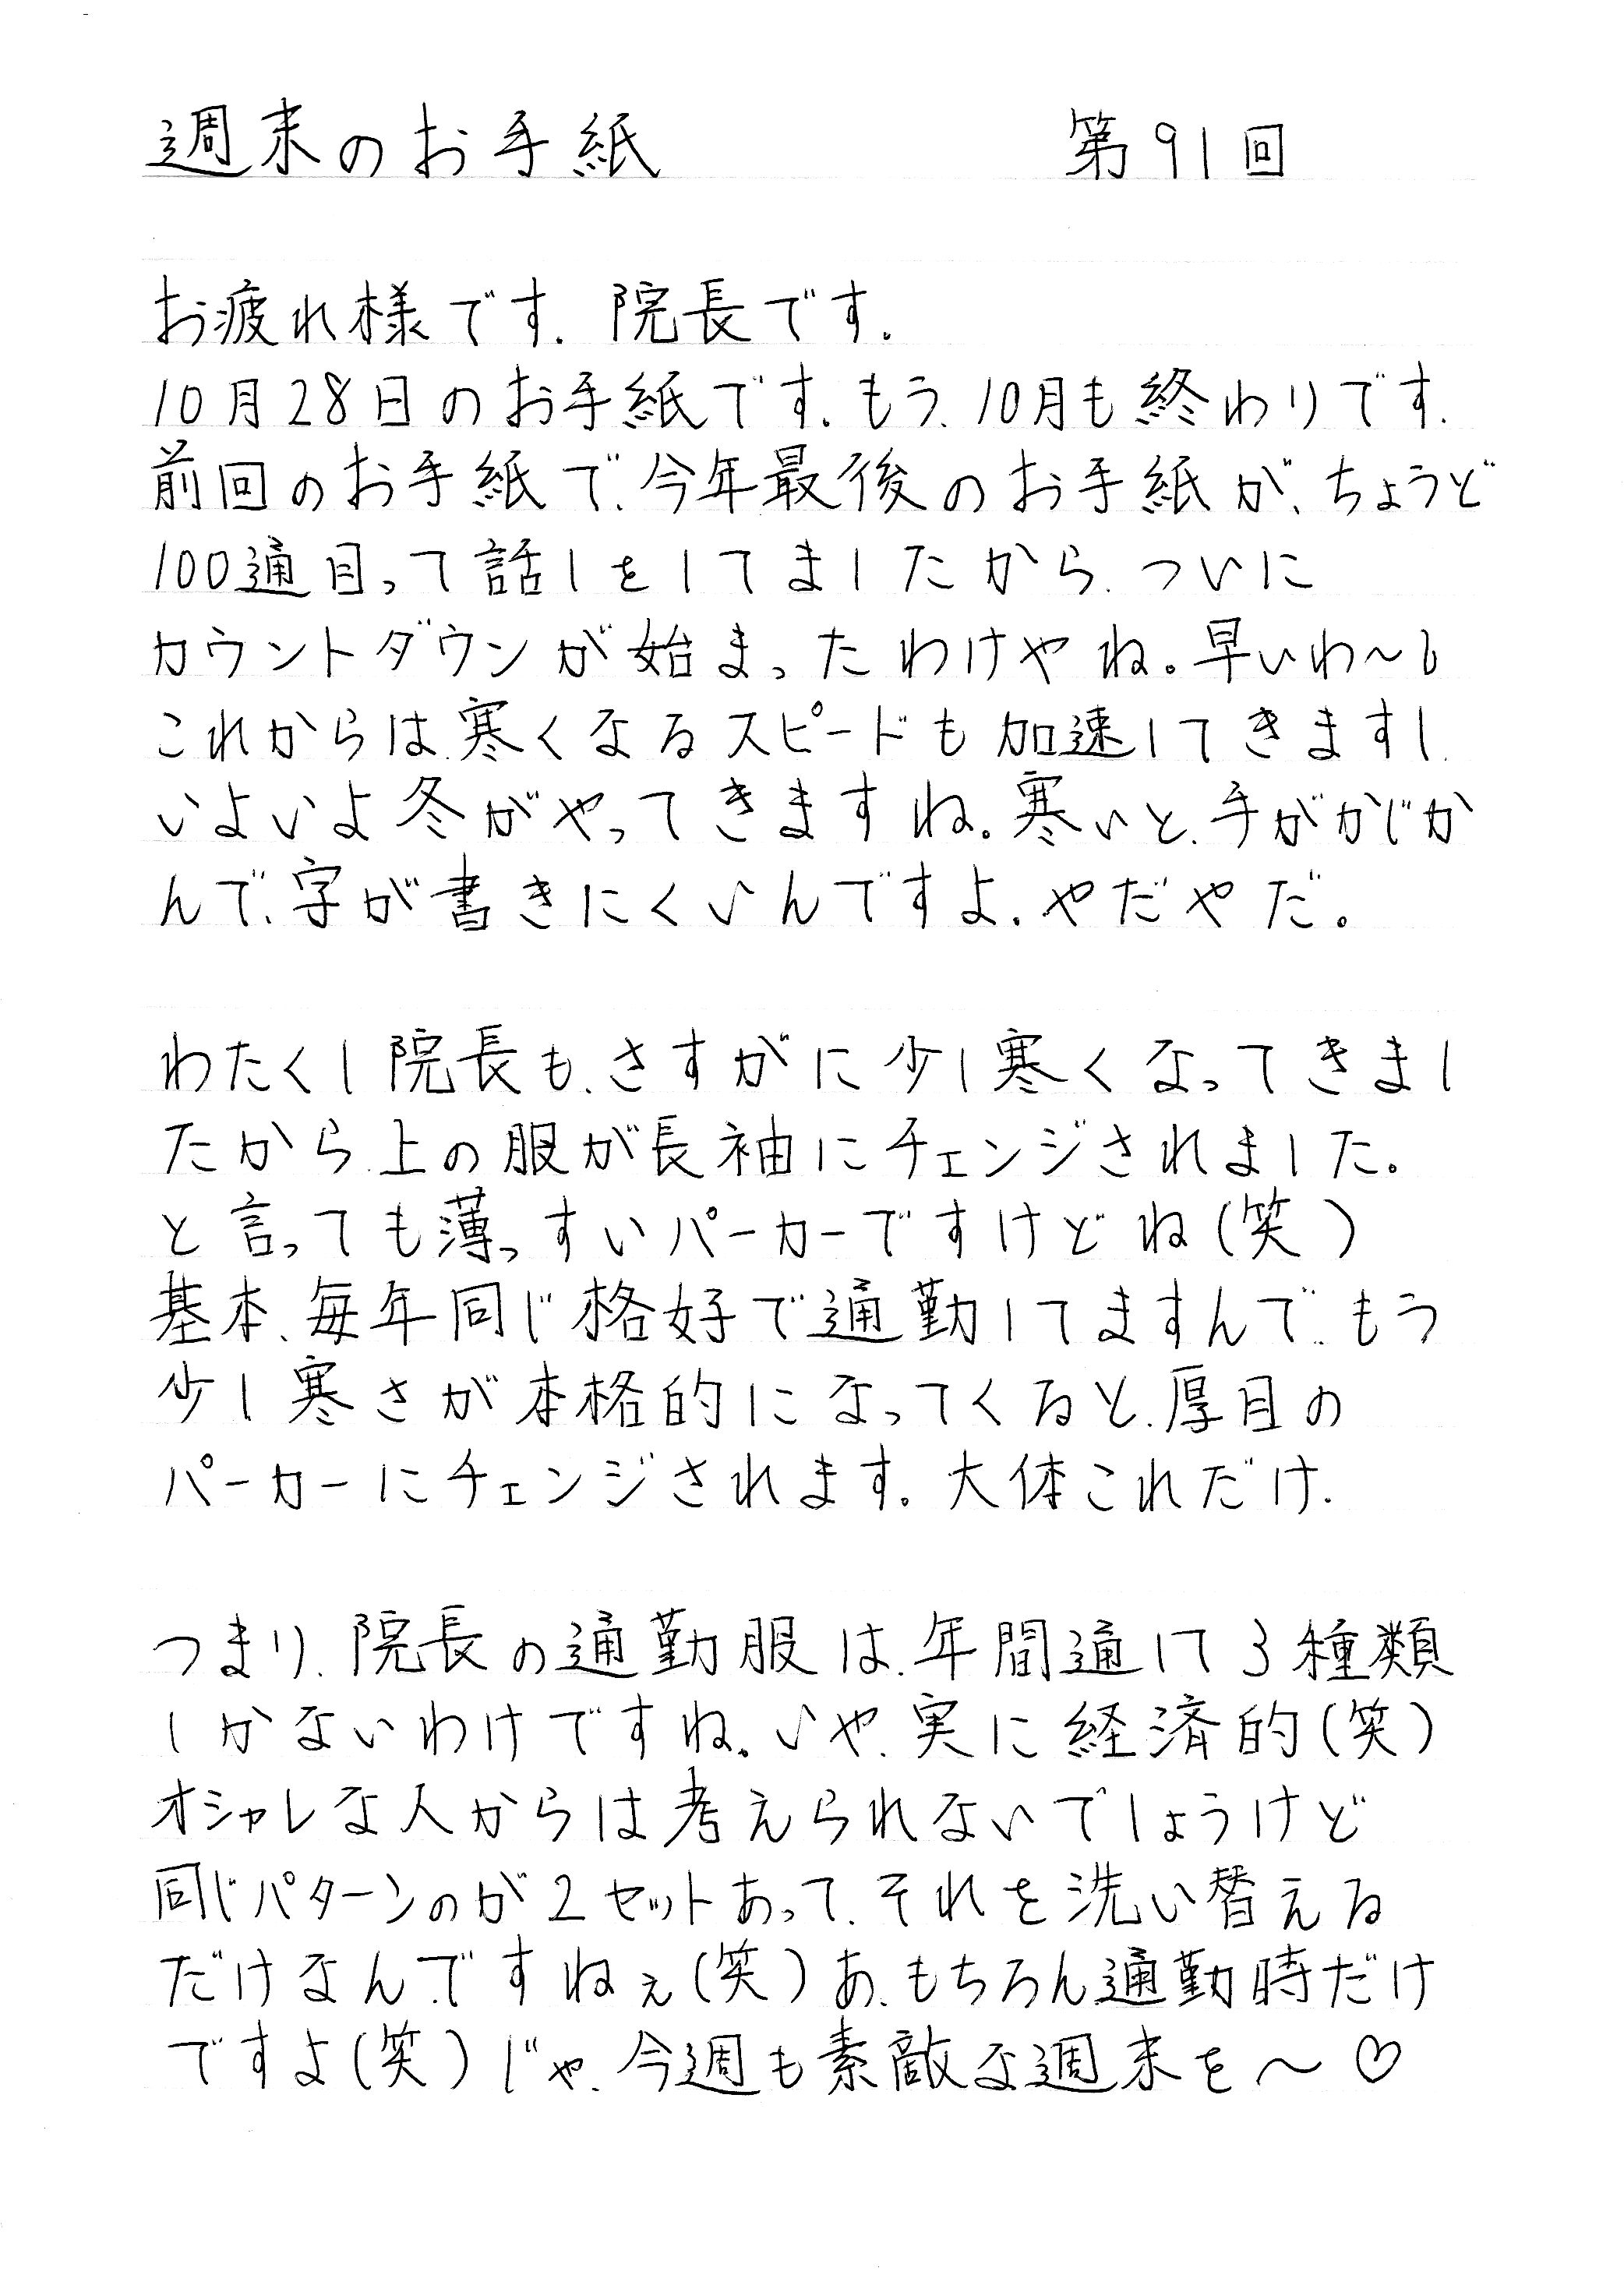 週末のお手紙 第91回
お疲れ様です、院長です。
10月28日のお手紙です。もう、10月も終わりです。
前回のお手紙で、今年最後のお手紙が、ちょうど
100通目って話しをしてましたから、ついに
カウントダウンが始まったわけやね。早いわ〜。
これからは、寒くなるスピードも加速してきますし、
いよいよ冬がやってきますね。寒いと、手がかじか
んで、字が書きにくいんですよ。やだやだ。
わたくし院長も、さすがに少し寒くなってきまし
たから、上の服が長袖にチェンジされました。
と言っても薄っすいパーカーですけどね(笑)
基本、毎年同じ格好で通勤してますんで、もう
少し寒さが本格的になってくると、厚目の
パーカーにチェンジされます。大体これだけ。
つまり、院長の通勤服は、年間通して3種類
しかないわけですね。いや、実に経済的(笑)
オシャレな人からは考えられないでしょうけど
同じパターンのが2セットあって、それを洗い替える
だけなんですねぇ(笑)あ、もちろん、通勤時だけ
ですよ(笑)じゃ、今週も素敵な週末を〜♡